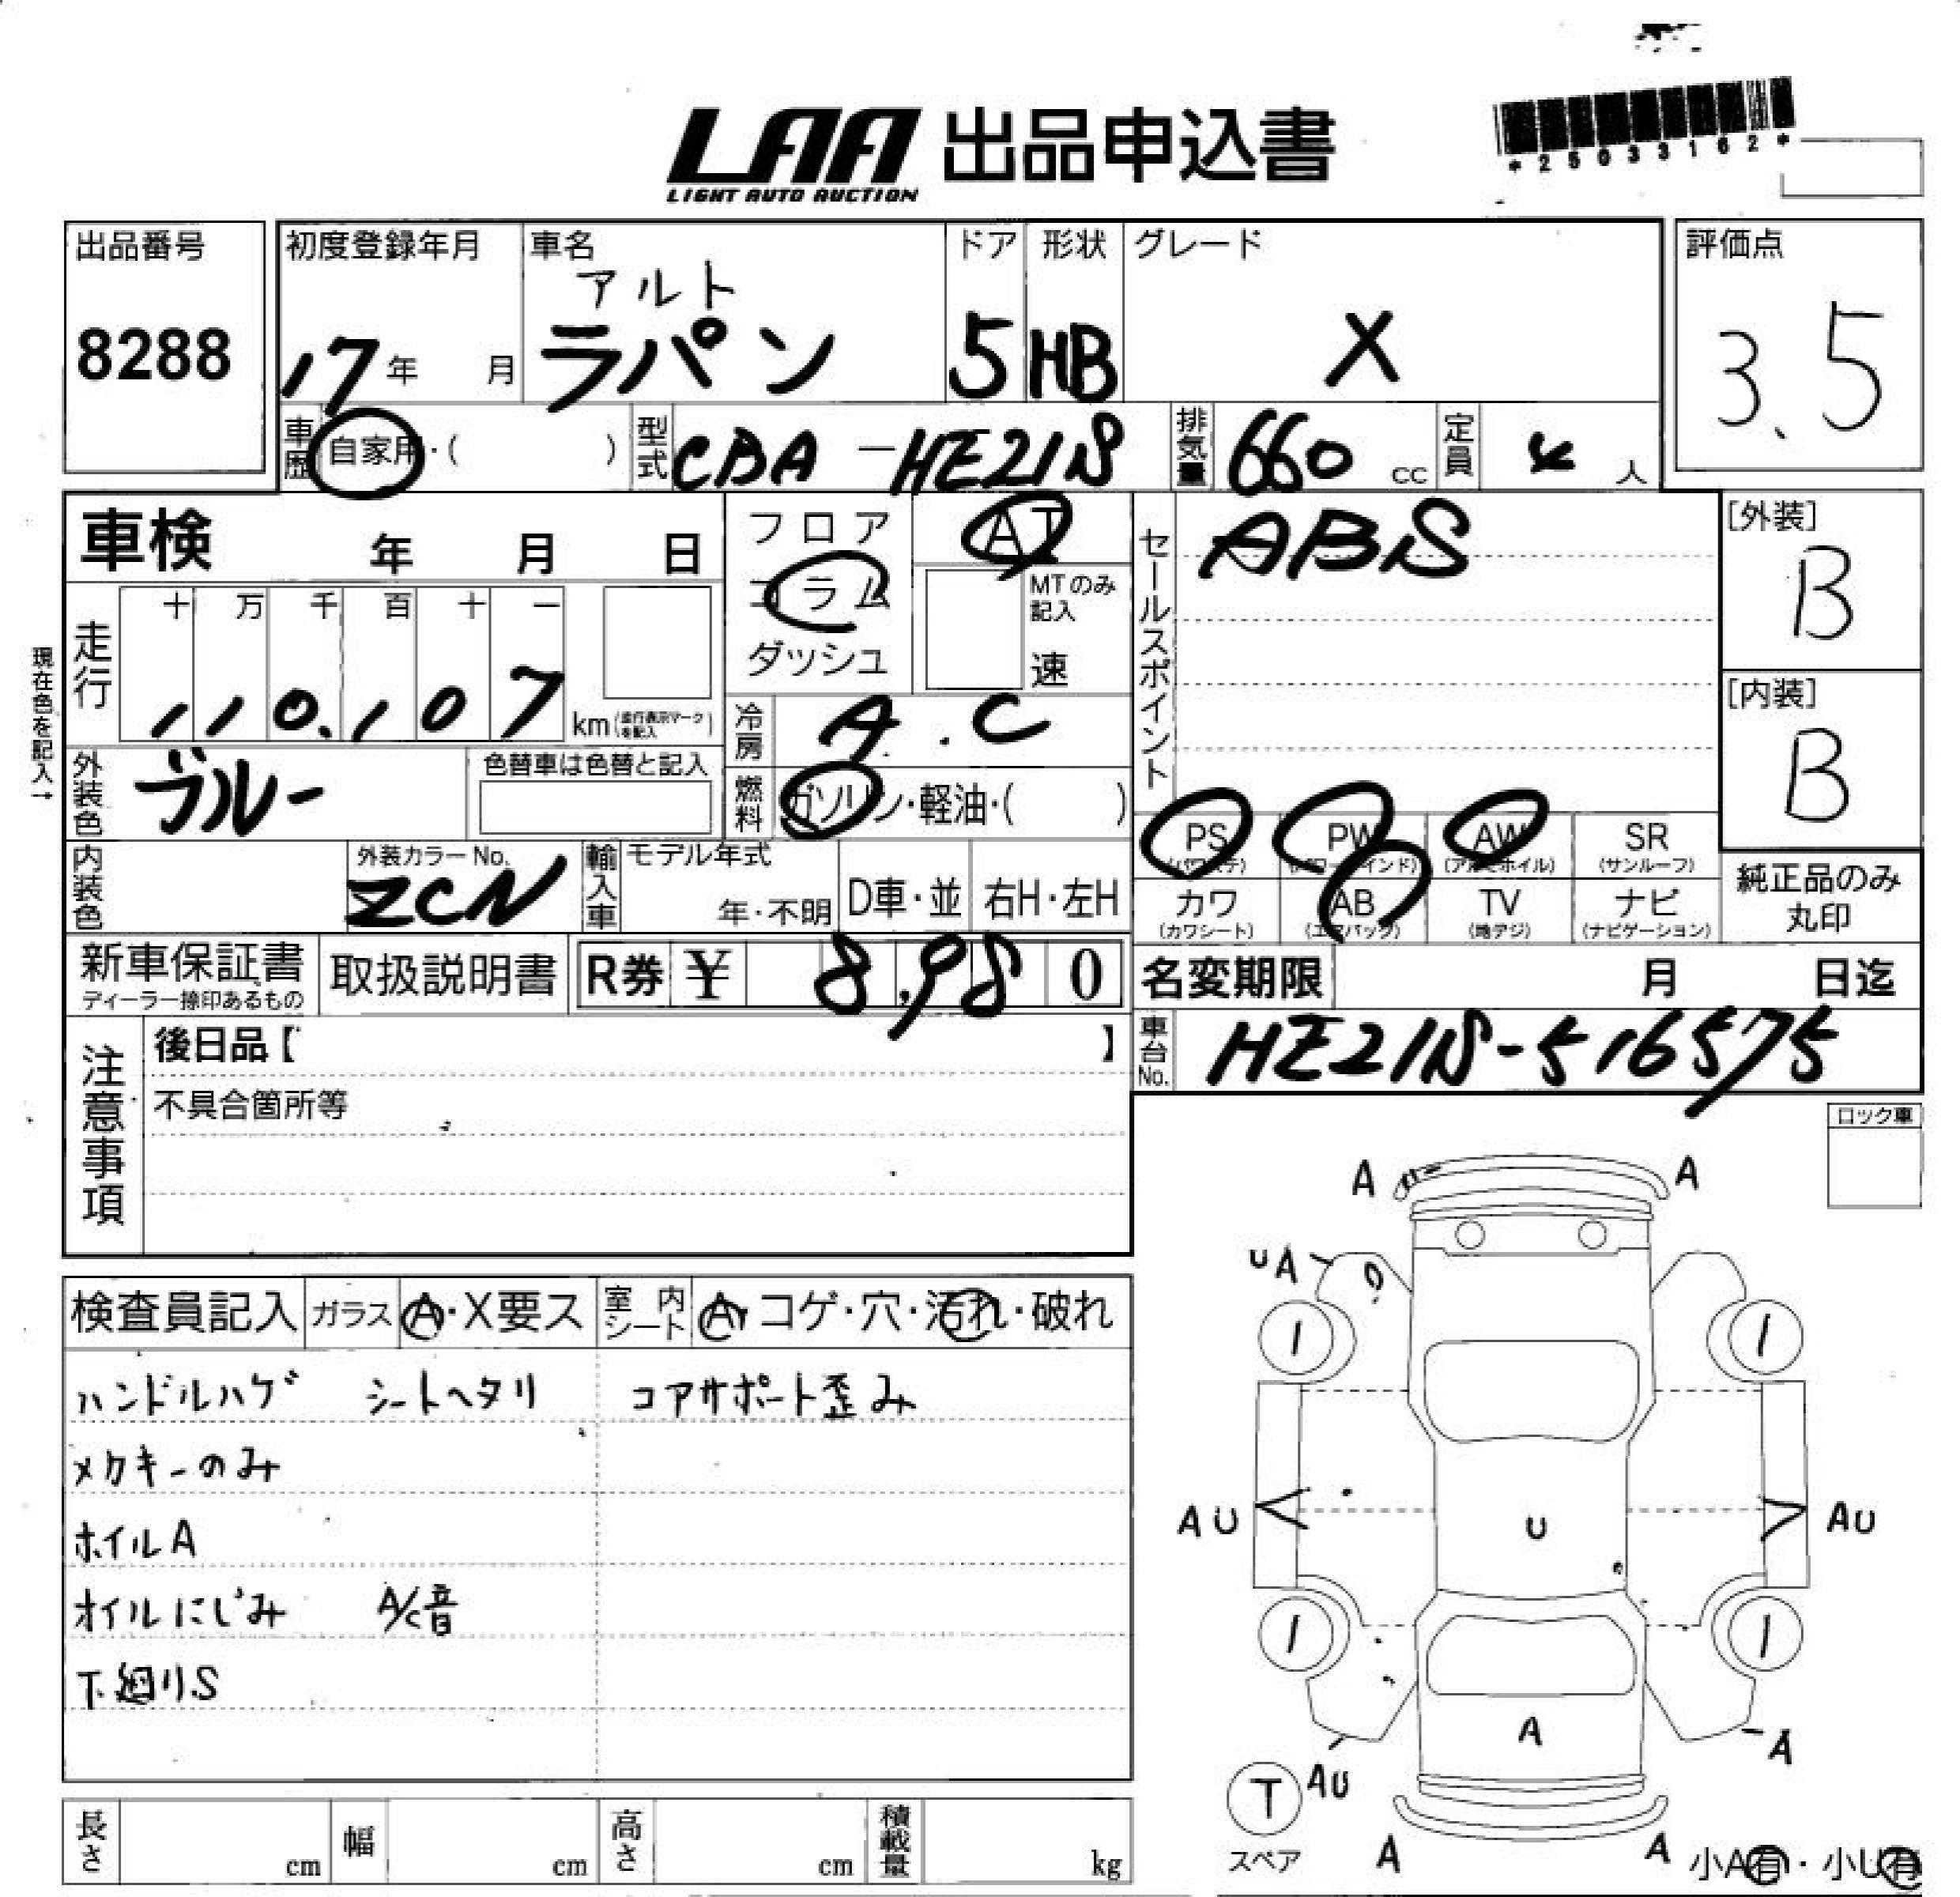 LAA 出品申込書
LIGHT AUTO AUCTION
*25033162*
出品番号
8288
初度登録年月
17年 月
車名
アルト
ラパン
ドア
5
形状
HB
グレード
X
評価点
3.5
車歴 自家用・( )
型式 CBA-HE21S
排気量 660 cc
定員 4 人
車検 年 月 日
フロア
コラム
ダッシュ
AT
MTのみ
記入
速
セールスポイント
ABS
[外装]
B
[内装]
B
現在色を記入→
走行
十 万 千 百 十 一
110,107 km
(走行表示マークを記入)
冷房 A.C
外装色 ブルー
色替車は色替と記入
燃料 ガソリン・軽油・( )
PS
(パワステ)
PW
(パワーウインド)
AW
(アルミホイル)
SR
(サンルーフ)
カワ
(カワシート)
AB
(エアバック)
TV
(地デジ)
ナビ
(ナビゲーション)
純正品のみ
丸印
内装色
外装カラーNo.
ZCN
輸入車
モデル年式
年・不明
D車・並
右H・左H
新車保証書
ディーラー捺印あるもの
取扱説明書
R券 ¥ 8,980
名変期限 月 日迄
車台No. HE21S-516575
注意事項
後日品【 】
不具合箇所等
ロック車
検査員記入
ガラス A・X要ス
室内シート A・コゲ・穴・汚れ・破れ
ハンドルハゲ シートヘタリ コアサポート歪み
メカキーのみ
ホイルA
オイルにじみ A/C音
下廻りS
A A
UA
AU U AU
A
AU A
T
スペア
A A
小A有・小U有
長さ cm
幅 cm
高さ cm
積載量 kg